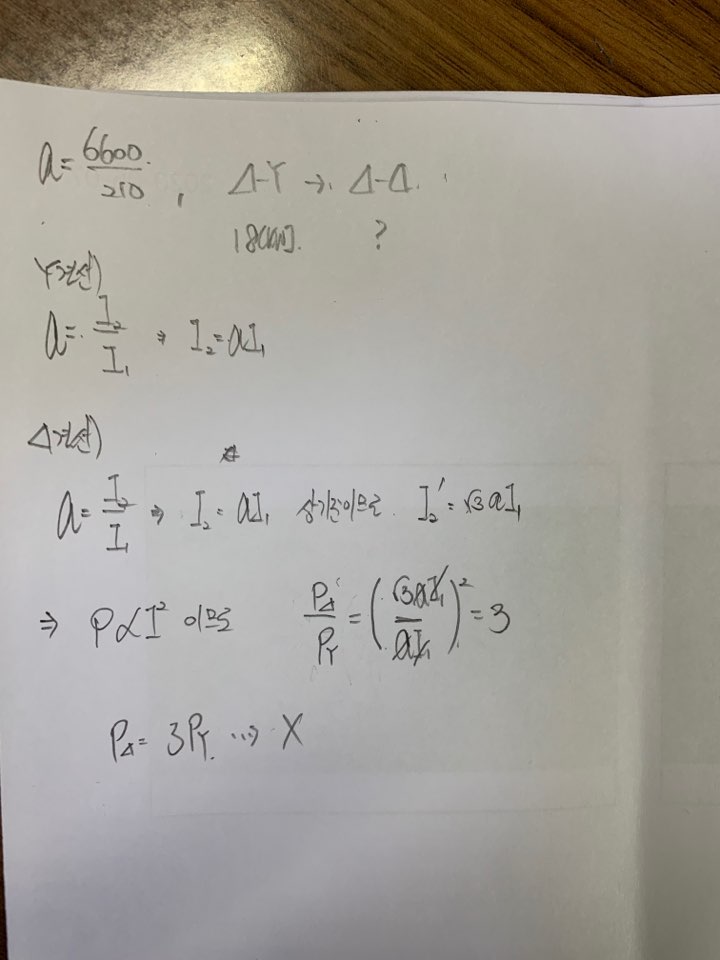 a = 6600/210 , Δ-Y → Δ-Δ.
18[kW]. ?
Y결선)
a = I₂/I₁ ⇒ I₂ = aI₁
Δ결선)
a = I₂/I₁ ⇒ I₂ = aI₁ 상기준이므로 I₂' = √3 aI₁
⇒ P ∝ I² 이므로 P_Δ'/P_Y = (√3aI₁/aI₁)² = 3
P_Δ = 3P_Y. ⋯→ X